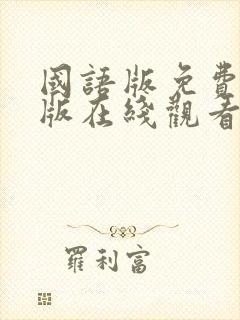 國語版免費
版在綫觀看
羅利富